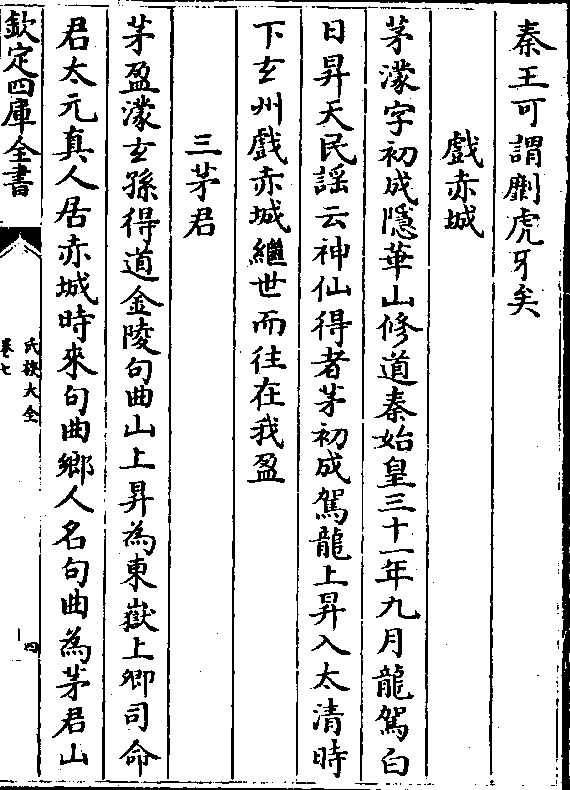 秦王可謂劘虎牙矣
戲赤城
茅濛字初成隱華山修道秦始皇三十一年九月龍駕白
日昇天民謡云神仙得者茅初成駕龍上昇入太清時
下玄州戲赤城繼世而往在我盈
三茅君
茅盈濛玄孫得道金陵句曲山上昇為東嶽上卿司命
君太元真人居赤城時來句曲鄉人名句曲為茅君山
欽定四庫全書
氏族大全
卷七
四